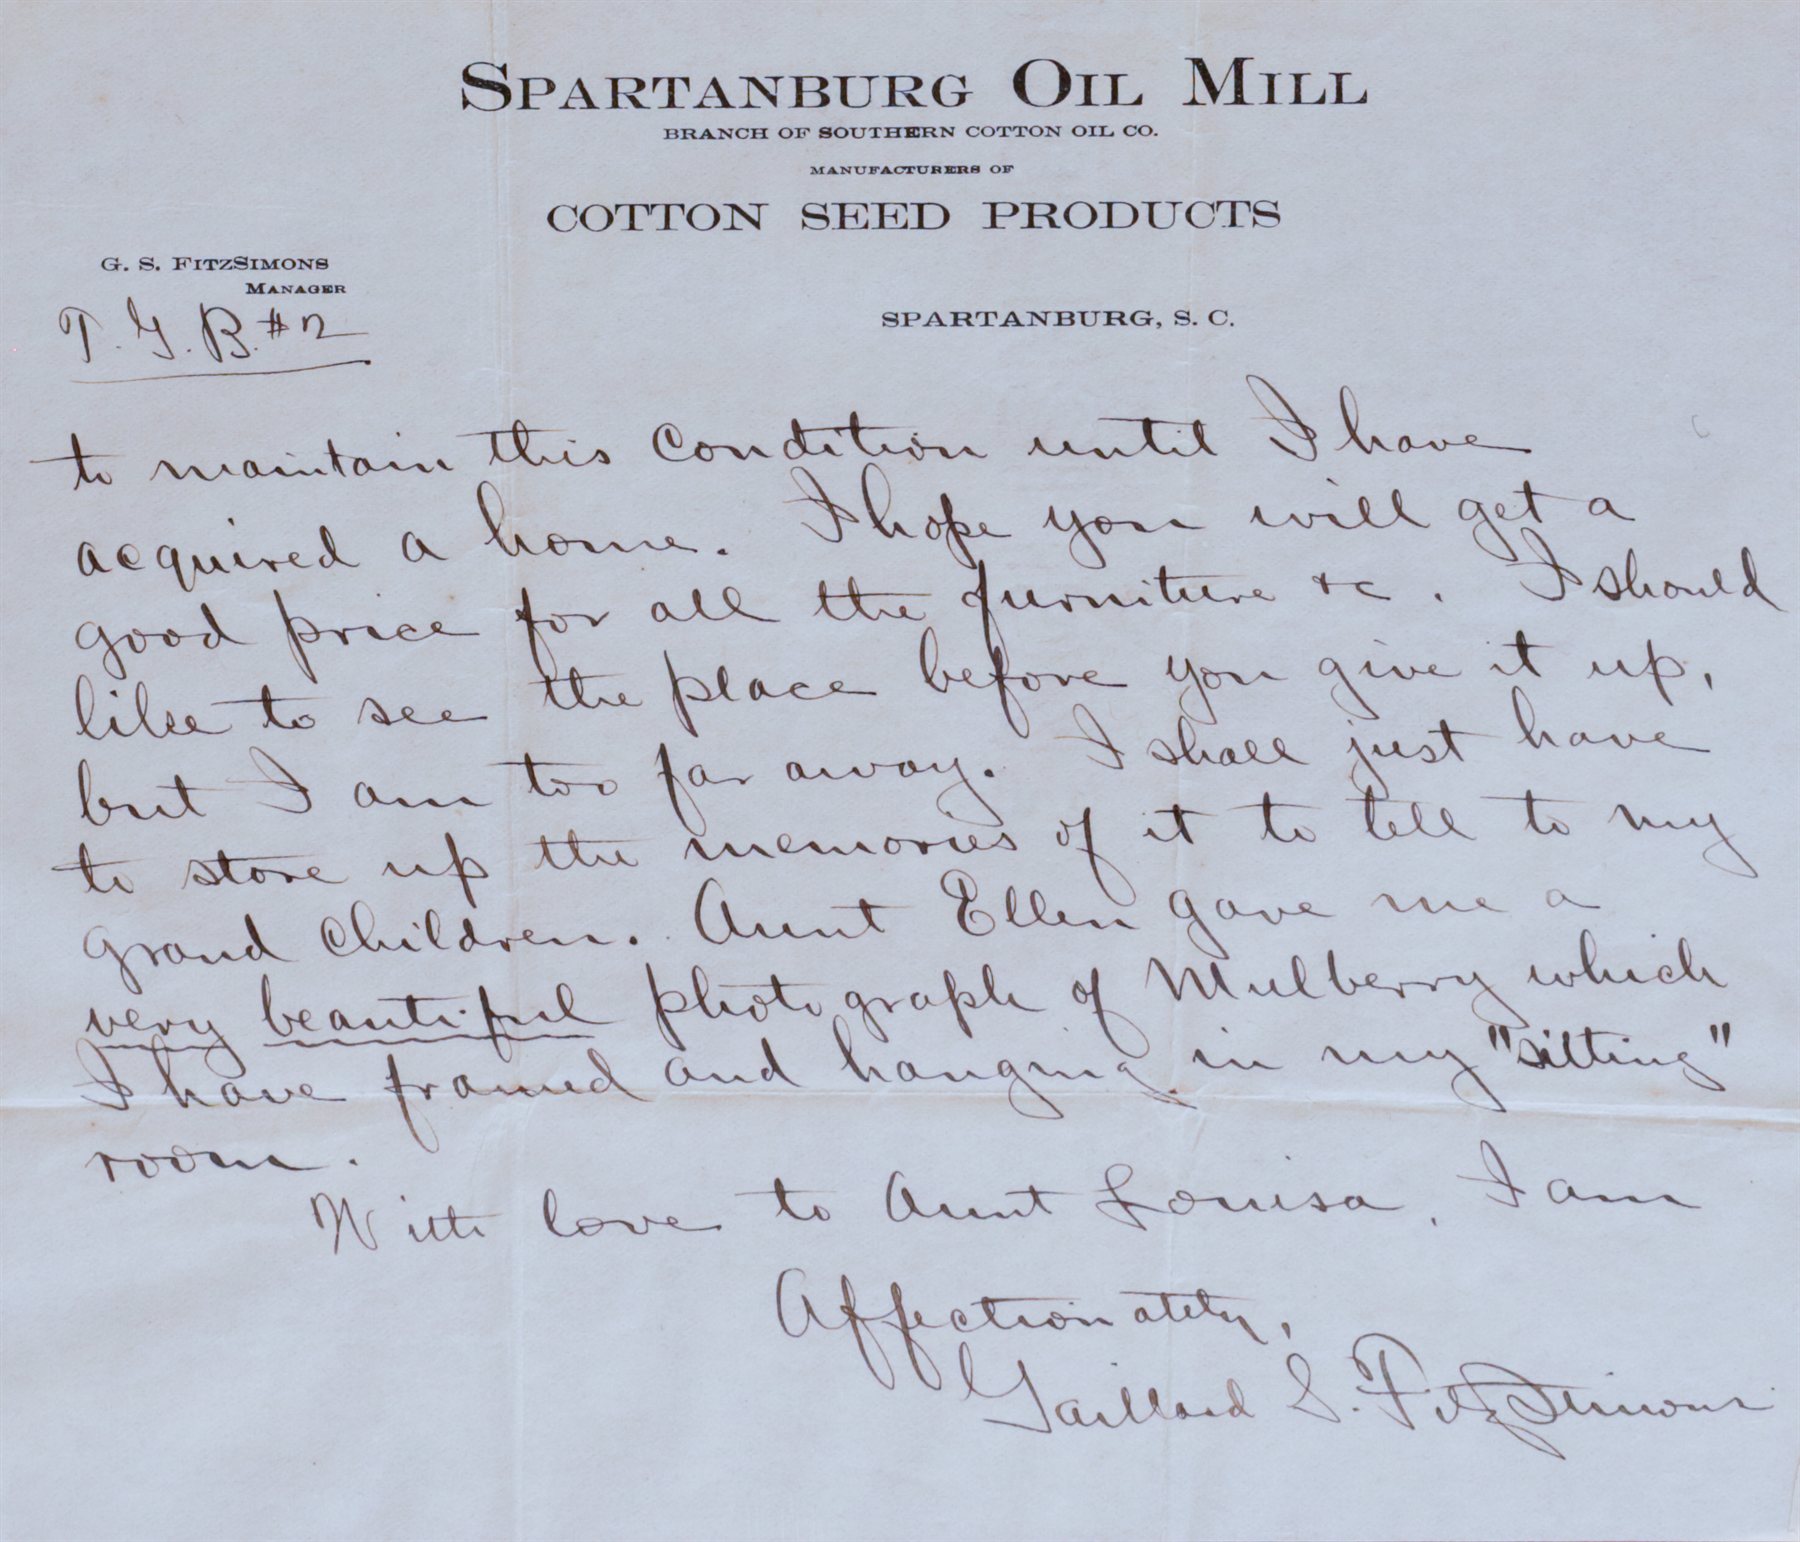 SPARTANBURG OIL MILL
BRANCH OF SOUTHERN COTTON OIL CO.
MANUFACTURERS OF
COTTON SEED PRODUCTS
G. S. FITZSIMONS
MANAGER
SPARTANBURG, S. C.
T. G. B. #2
to maintain this condition until I have
acquired a home. I hope you will get a
good price for all the furniture &c. I should
like to see the place before you give it up,
but I am too far away. I shall just have
to store up the memories of it to tell to my
grand children. Aunt Ellen gave me a
very beautiful photograph of Mulberry which
I have framed and hanging in my "sitting"
room.
With love to Aunt Louisa, I am
Affectionately,
Gaillard S. FitzSimons